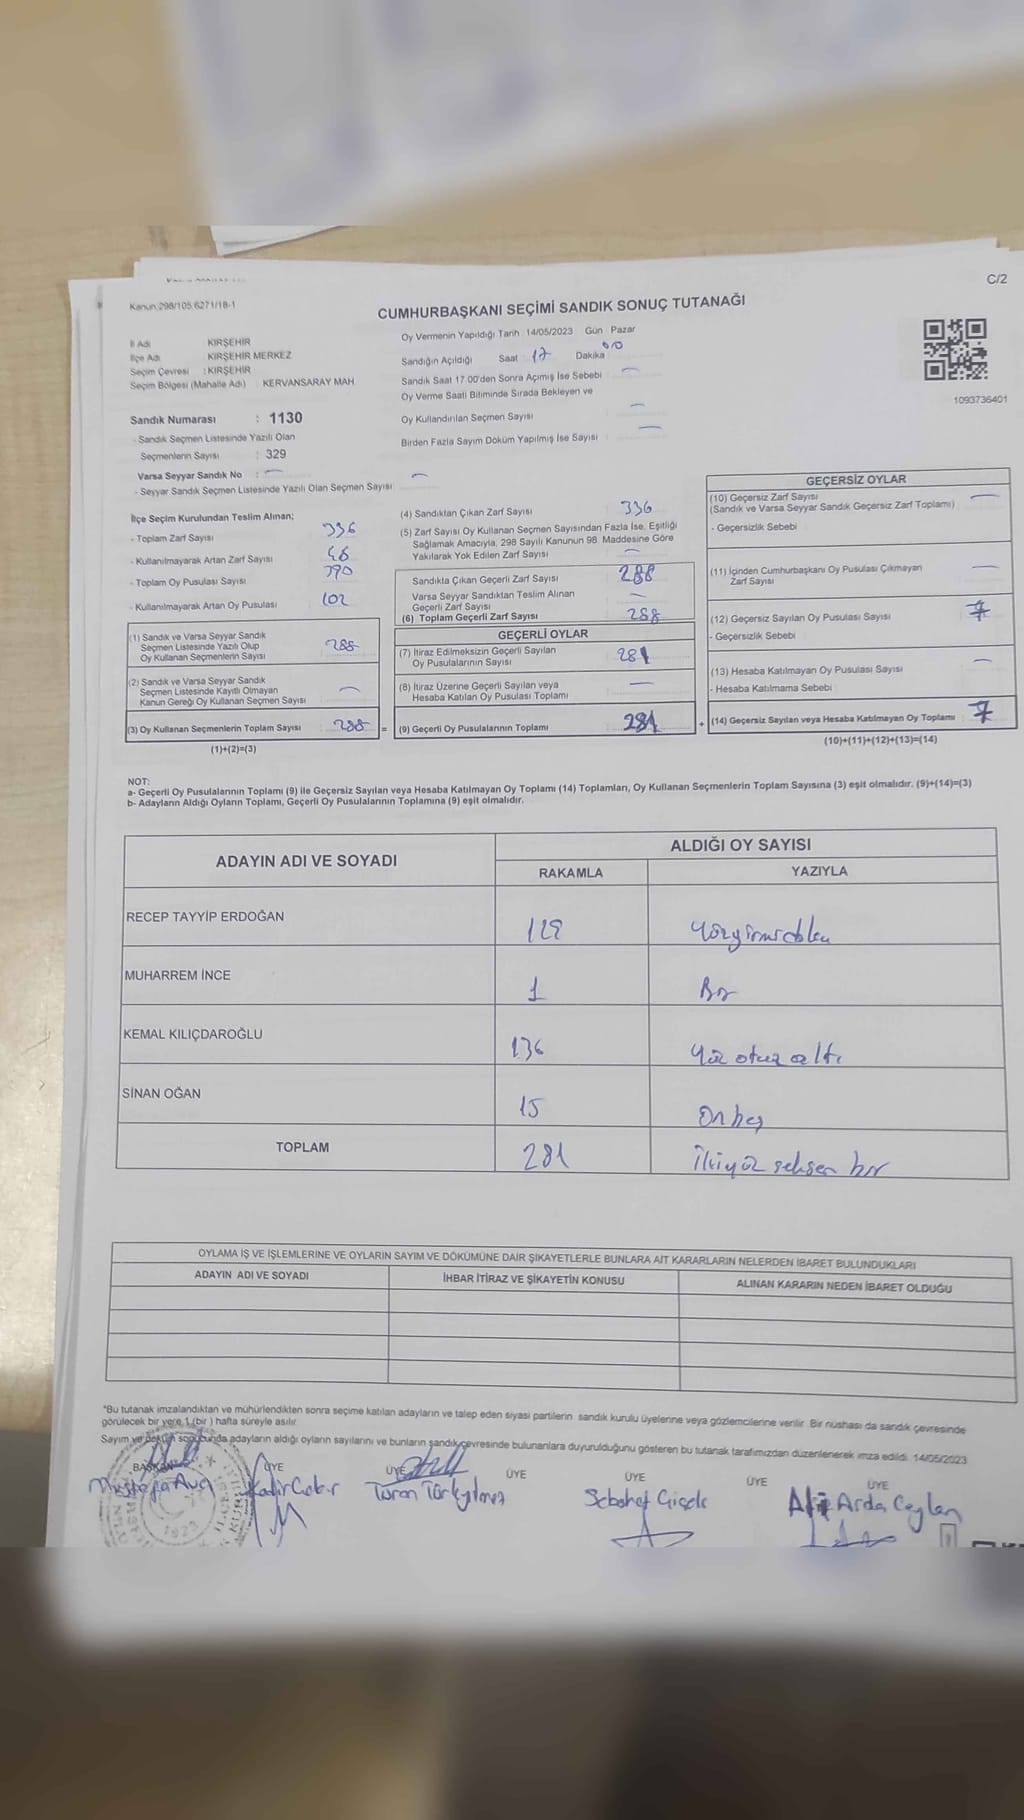 C/2
Kanun 298/105 6271/18-1
CUMHURBAŞKANI SEÇİMİ SANDIK SONUÇ TUTANAĞI
İl Adı KIRŞEHİR
İlçe Adı KIRŞEHİR MERKEZ
Seçim Çevresi : KIRŞEHİR
Seçim Bölgesi (Mahalle Adı) KERVANSARAY MAH
Sandık Numarası : 1130
- Sandık Seçmen Listesinde Yazılı Olan
Seçmenlerin Sayısı : 329
Varsa Seyyar Sandık No : —
- Seyyar Sandık Seçmen Listesinde Yazılı Olan Seçmen Sayısı —
Oy Vermenin Yapıldığı Tarih 14/05/2023 Gün Pazar
Sandığın Açıldığı Saat 17 Dakika 00
Sandık Saat 17 00'den Sonra Açımış İse Sebebi —
Oy Verme Saati Bitiminde Sırada Bekleyen ve
Oy Kullandırılan Seçmen Sayısı —
Birden Fazla Sayım Döküm Yapılmış İse Sayısı —
1093736401
İlçe Seçim Kurulundan Teslim Alınan;
- Toplam Zarf Sayısı 336
- Kullanılmayarak Artan Zarf Sayısı 48
- Toplam Oy Pusulası Sayısı 390
- Kullanılmayarak Artan Oy Pusulası 102
(1) Sandık ve Varsa Seyyar Sandık
Seçmen Listesinde Yazılı Olup
Oy Kullanan Seçmenlerin Sayısı 288
(2) Sandık ve Varsa Seyyar Sandık
Seçmen Listesinde Kayıtlı Olmayan
Kanun Gereği Oy Kullanan Seçmen Sayısı —
(3) Oy Kullanan Seçmenlerin Toplam Sayısı 288 =
(1)+(2)=(3)
(4) Sandıktan Çıkan Zarf Sayısı 336
(5) Zarf Sayısı Oy Kullanan Seçmen Sayısından Fazla İse, Eşitliği
Sağlamak Amacıyla, 298 Sayılı Kanunun 98. Maddesine Göre
Yakılarak Yok Edilen Zarf Sayısı —
Sandıkta Çıkan Geçerli Zarf Sayısı 288
Varsa Seyyar Sandıktan Teslim Alınan
Geçerli Zarf Sayısı —
(6) Toplam Geçerli Zarf Sayısı 288
GEÇERLİ OYLAR
(7) İtiraz Edilmeksizin Geçerli Sayılan
Oy Pusulalarının Sayısı 281
(8) İtiraz Üzerine Geçerli Sayılan veya
Hesaba Katılan Oy Pusulası Toplamı —
(9) Geçerli Oy Pusulalarının Toplamı 281 +
GEÇERSİZ OYLAR
(10) Geçersiz Zarf Sayısı —
(Sandık ve Varsa Seyyar Sandık Geçersiz Zarf Toplamı)
- Geçersizlik Sebebi
(11) İçinden Cumhurbaşkanı Oy Pusulası Çıkmayan —
Zarf Sayısı
(12) Geçersiz Sayılan Oy Pusulası Sayısı 7
- Geçersizlik Sebebi
(13) Hesaba Katılmayan Oy Pusulası Sayısı —
- Hesaba Katılmama Sebebi
(14) Geçersiz Sayılan veya Hesaba Katılmayan Oy Toplamı 7
(10)+(11)+(12)+(13)=(14)
NOT:
a- Geçerli Oy Pusulalarının Toplamı (9) ile Geçersiz Sayılan veya Hesaba Katılmayan Oy Toplamı (14) Toplamları, Oy Kullanan Seçmenlerin Toplam Sayısına (3) eşit olmalıdır. (9)+(14)=(3)
b- Adayların Aldığı Oyların Toplamı, Geçerli Oy Pusulalarının Toplamına (9) eşit olmalıdır.
ADAYIN ADI VE SOYADI ALDIĞI OY SAYISI
RAKAMLA YAZIYLA
RECEP TAYYİP ERDOĞAN 129 Yüzyirmidokuz
MUHARREM İNCE 1 Bir
KEMAL KILIÇDAROĞLU 136 Yüz otuz altı
SİNAN OĞAN 15 Onbeş
TOPLAM 281 İkiyüz seksen bir
OYLAMA İŞ VE İŞLEMLERİNE VE OYLARIN SAYIM VE DÖKÜMÜNE DAİR ŞİKAYETLERLE BUNLARA AİT KARARLARIN NELERDEN İBARET BULUNDUKLARI
ADAYIN ADI VE SOYADI İHBAR İTİRAZ VE ŞİKAYETİN KONUSU ALINAN KARARIN NEDEN İBARET OLDUĞU
"Bu tutanak imzalandıktan ve mühürlendikten sonra seçime katılan adayların ve talep eden siyasi partilerin sandık kurulu üyelerine veya gözlemcilerine verilir. Bir nüshası da sandık çevresinde
görülecek bir yere 1 (bir) hafta süreyle asılır.
Sayım ve döküm sonucunda adayların aldığı oyların sayılarını ve bunların sandık çevresinde bulunanlara duyurulduğunu gösteren bu tutanak tarafımızdan düzenlenerek imza edildi. 14/05/2023
BAŞKAN ÜYE ÜYE ÜYE ÜYE ÜYE ÜYE
Mustafa Avcı Kadir Turan Türkyılmaz Sebahat Çiçek Arda Ceylan